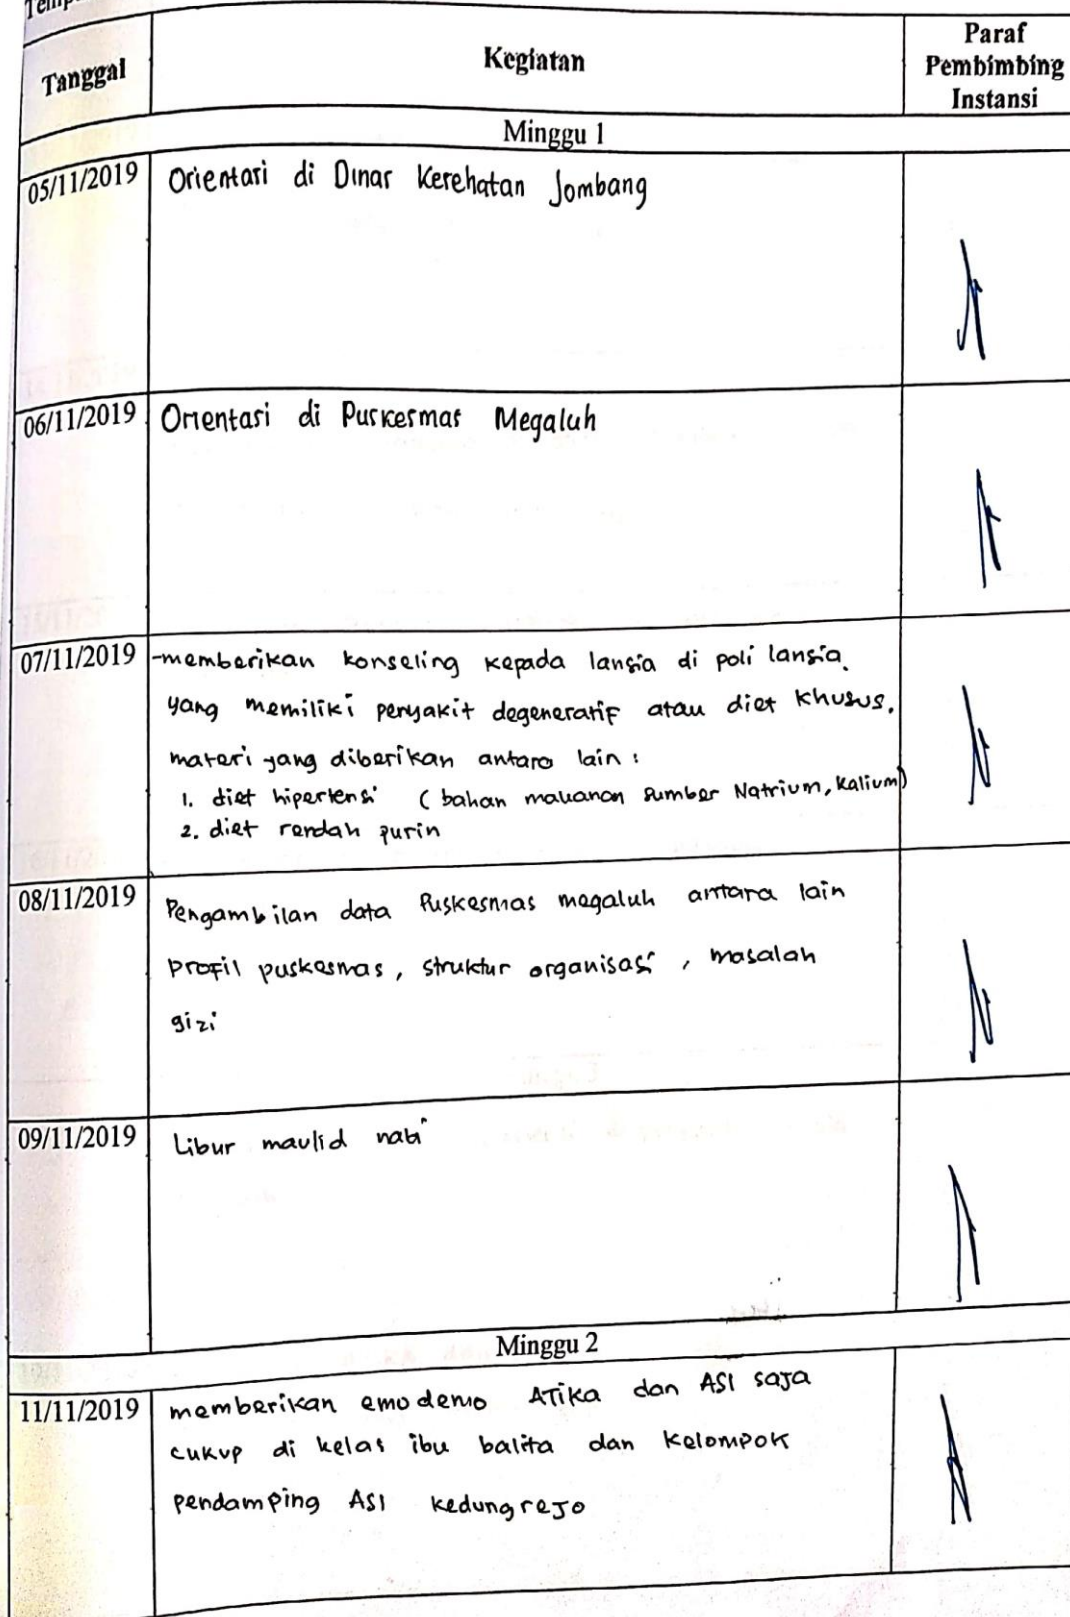 Tanggal
Kegiatan
Paraf
Pembimbing
Instansi
Minggu 1
05/11/2019
Orientasi di Dinas Kesehatan Jombang
06/11/2019
Orientasi di Puskesmas Megaluh
07/11/2019
-memberikan konseling kepada lansia di poli lansia.
yang memiliki penyakit degeneratif atau diet khusus.
materi yang diberikan antara lain :
1. diet hipertensi (bahan makanan sumber Natrium, Kalium)
2. diet rendah purin
08/11/2019
Pengambilan data Puskesmas megaluh antara lain
profil puskesmas, struktur organisasi, masalah
gizi
09/11/2019
Libur maulid nabi
Minggu 2
11/11/2019
memberikan emodemo ATika dan ASI saja
cukup di kelas ibu balita dan kelompok
pendamping ASI kedungrejo